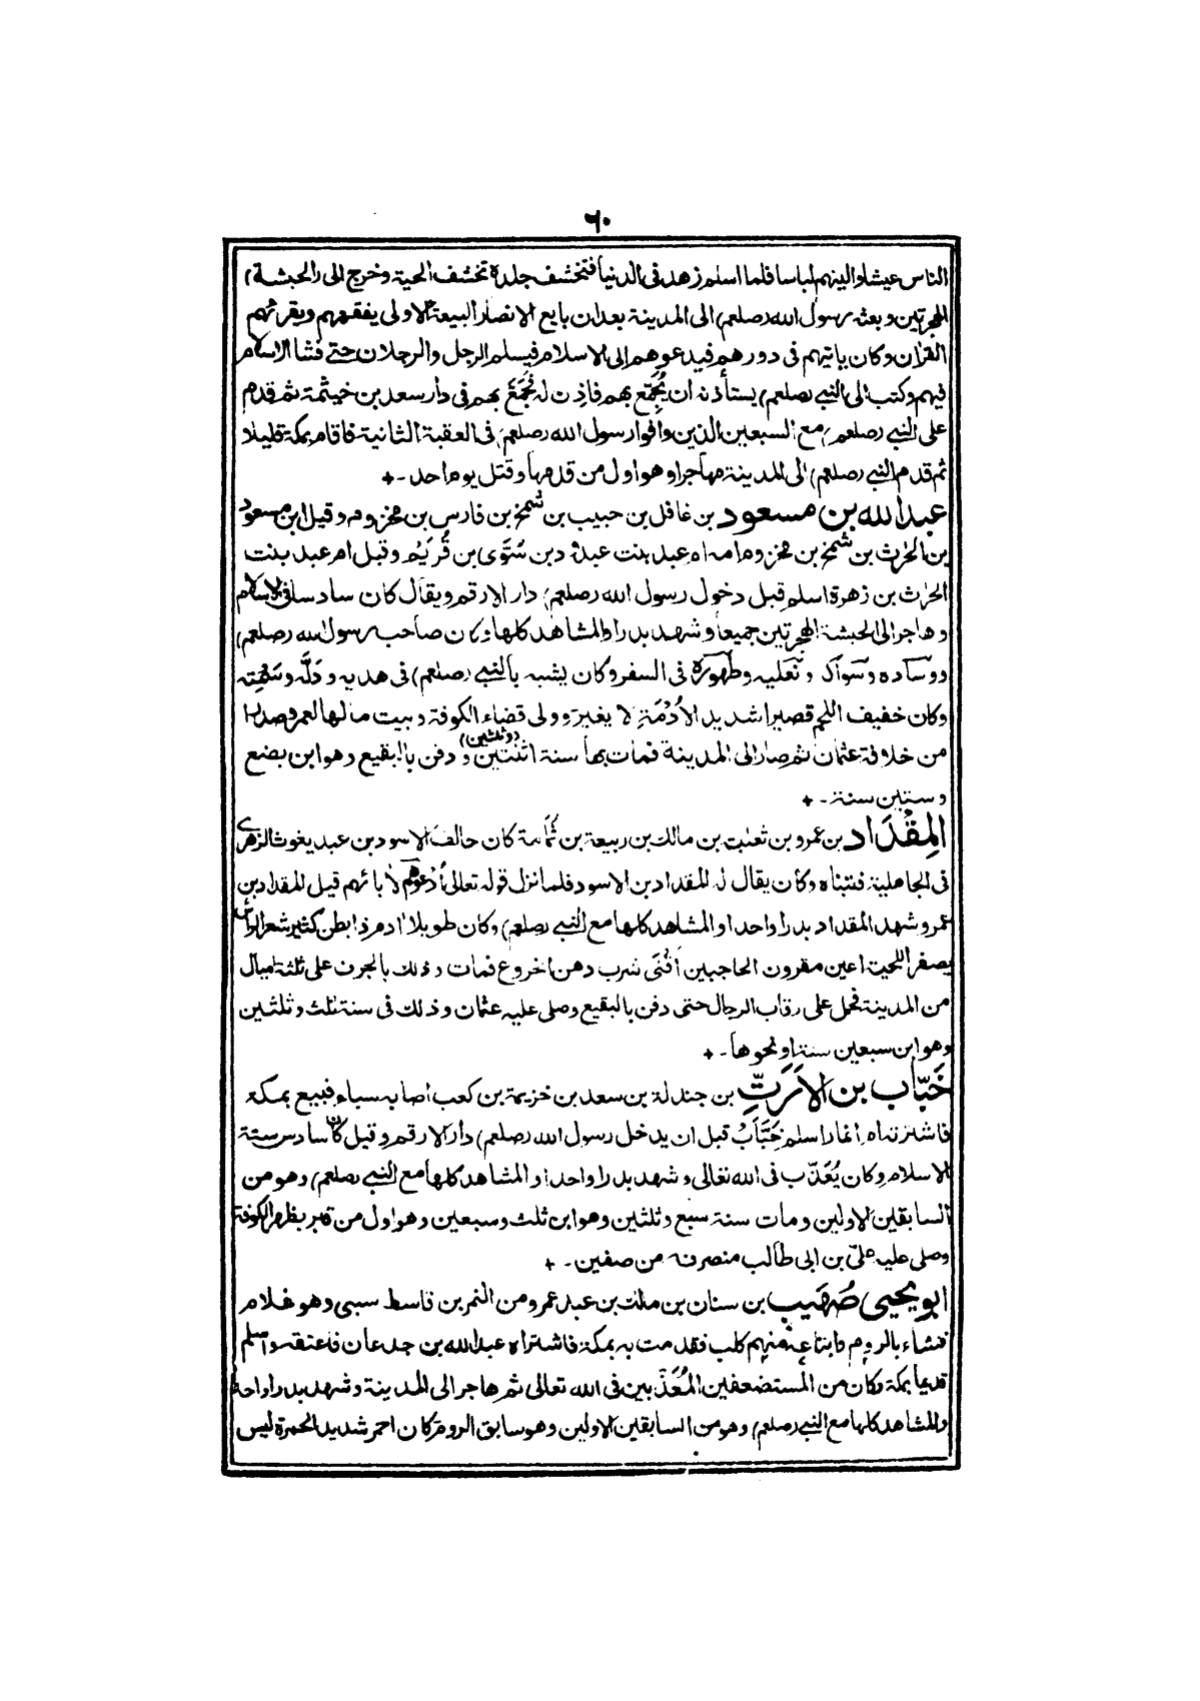 ٦٠
الناس عيشا والينهم لباسا فلما اسلم زهد فى الدنيا فتخشف جلده تخشف الحية وخرج الى (الحبشة)
الهجرتين وبعثه رسول الله (صلعم) الى المدينة بعد ان بايع الانصار البيعة الاولى يفقههم ويقرئهم
القرآن وكان ياتيهم فى دورهم فيدعوهم الى الاسلام فيسلم الرجل والرجلان حتى فشا الاسلام
فيهم وكتب الى النبي (صلعم) يستأذنه ان يُجمّع بهم فاذن له فجَمَّعَ بهم فى دار سعد بن خيثمة ثم قدم
على النبي (صلعم) مع السبعين الذين وافوا رسول الله (صلعم) فى العقبة الثانية فاقام بمكة قليلا
ثم قدم النبي (صلعم) الى المدينة مهاجرا وهو اول من قدمها وقتل يوم احد -+
عبد الله بن مسعود بن غافل بن حبيب بن شمخ بن فارس بن مخزوم وقيل ابن مسعود
بن الحرث بن شمخ بن مخزوم امه ام عبد بنت عبد ود بن سَوَى بن قُرَيْم وقيل ام عبد بنت
الحرث بن زهرة اسلم قبل دخول رسول الله (صلعم) دار الارقم ويقال كان سادسا فى الاسلام
وهاجر الى الحبشة الهجرتين جميعا وشهد بدرا والمشاهد كلها وكان صاحب رسول الله (صلعم)
ووساده وسواكه ونعليه وطهوره فى السفر وكان يشبه بالنبي (صلعم) فى هديه ودَلّه وسَمْته
وكان خفيف اللحم قصيرا شديد الأُدْمَةِ لا يغير وولى قضاء الكوفة وبيت مالها لعمر وصدرا
من خلافة عثمان ثم صار الى المدينة فمات بها سنة اثنتين (وثلثين) و دفن بالبقيع وهو ابن بضع
وستين سنة -+
المِقْدَاد بن عمرو بن ثعلبت بن مالك بن ربيعة بن ثُمامة كان حالف الاسود بن عبد يغوث الزهرى
فى الجاهلية فتبناه وكان يقال له المقداد بن الاسود فلما نزل قوله تعالى اُدعوهم لآبائهم قيل المقداد بن
عمرو شهد المقداد بدرا واحدا والمشاهد كلها مع النبي (صلعم) وكان طويلا آدم ذا بطن كثير شعر الراس
يصفر اللحيت اعين مقرون الحاجبين اقنى شرب دهن الخروع فمات وذلك بالجرف على ثلثة اميال
من المدينة فحمل على رقاب الرجال حتى دفن بالبقيع وصلى عليه عثمان وذلك فى سنة ثلث وثلثين
وهو ابن سبعين سنة او نحوها -+
خَبّاب بن الأَرَتّ بن جندلة بن سعد بن خزيمة بن كعب اصابه سباء فبيع بمكة
فاشترته ام انمار اسلم خَبَّاب قبل ان يدخل رسول الله (صلعم) دار الارقم وقيل كان سادس ستة
الاسلام وكان يُعَذّب فى الله تعالى وشهد بدرا واحدا والمشاهد كلها مع النبي (صلعم) وهو من
السابقين الاولين ومات سنة سبع وثلثين وهو ابن ثلث وسبعين وهو اول من قبر بظهر الكوفة
وصلى عليه علىّ بن ابى طالب منصرفه من صفين -+
ابو يحيى صُهَيب بن سنان بن ملك بن عبد عمرو من النمر بن قاسط سبى وهو غلام
فنشاء بالروم فابتاعته منهم كلب فقدمت به بمكة فاشتراه عبد الله بن جدعان فاعتقه واسلم
قديما بمكة وكان من المستضعفين المُعَذَّبين فى الله تعالى ثم هاجر الى المدينة وشهد بدرا واحدا
والمشاهد كلها مع النبي (صلعم) وهو من السابقين الاولين وهو سابق الروم كان احمر شديد الحمرة ليس